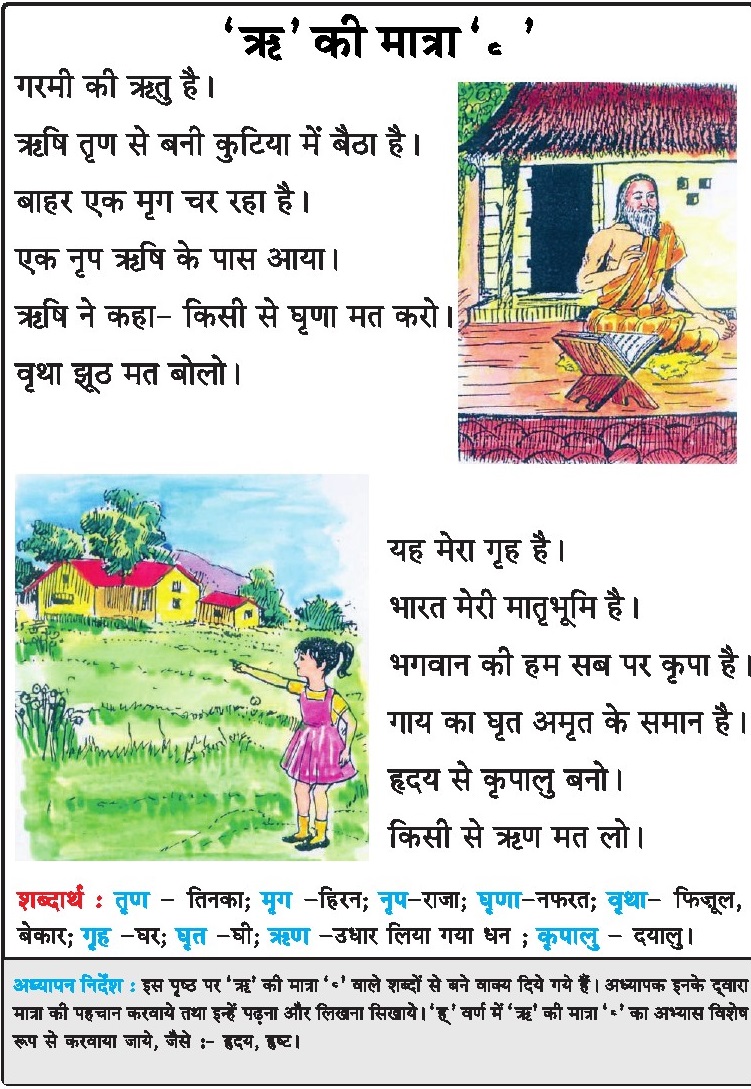 ‘ऋ’ की मात्रा ‘ ृ ’
गरमी की ऋतु है।
ऋषि तृण से बनी कुटिया में बैठा है।
बाहर एक मृग चर रहा है।
एक नृप ऋषि के पास आया।
ऋषि ने कहा– किसी से घृणा मत करो।
वृथा झूठ मत बोलो।
यह मेरा गृह है।
भारत मेरी मातृभूमि है।
भगवान की हम सब पर कृपा है।
गाय का घृत अमृत के समान है।
हृदय से कृपालु बनो।
किसी से ऋण मत लो।
शब्दार्थ : तृण – तिनका; मृग –हिरन; नृप–राजा; घृणा–नफरत; वृथा– फिज़ूल,
बेकार; गृह –घर; घृत –घी; ऋण –उधार लिया गया धन ; कृपालु – दयालु।
अध्यापन निर्देश : इस पृष्ठ पर ‘ऋ’ की मात्रा ‘ ृ’ वाले शब्दों से बने वाक्य दिये गये हैं। अध्यापक इनके द्वारा
मात्रा की पहचान करवाये तथा इन्हें पढ़ना और लिखना सिखाये। ‘ह्’ वर्ण में ‘ऋ’ की मात्रा ‘ ृ’ का अभ्यास विशेष
रूप से करवाया जाये, जैसे :– हृदय, हृष्ट।